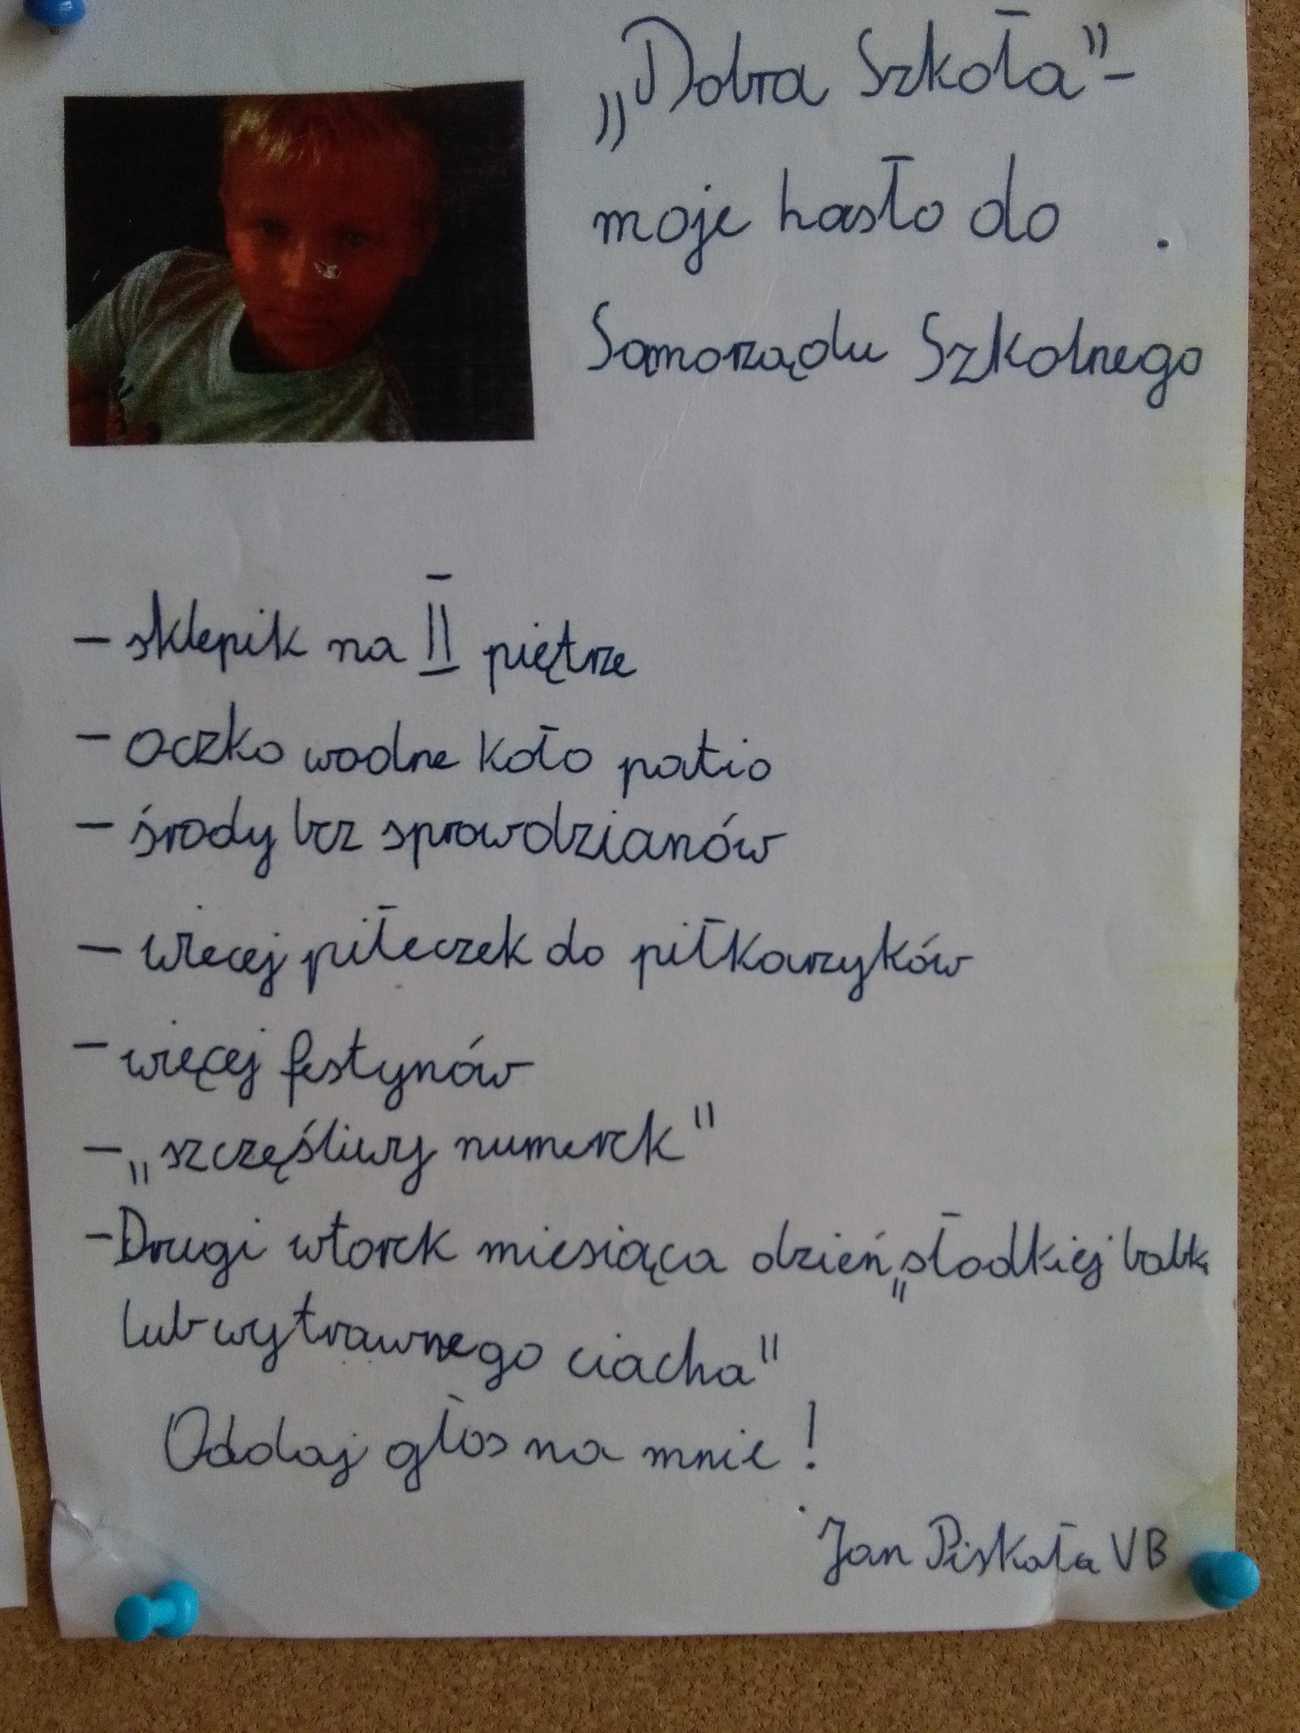 „Dobra Szkoła”-
moje hasło do
Samorządu Szkolnego
- sklepik na II piętrze
- oczko wodne koło patio
- środy bez sprawdzianów
- więcej piłeczek do piłkarzyków
- więcej festynów
- „szczęśliwy numerek"
- Drugi wtorek miesiąca dzień „słodkiej babki
lub wytrawnego ciacha"
Oddaj głos na mnie!
Jan Piskała VB